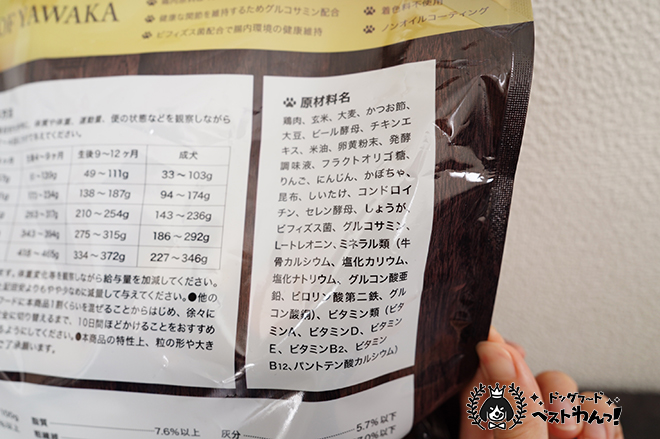 OF YAWAKA
健康な関節を維持するためグルコサミン配合
ビフィズス菌配合で腸内環境の健康維持
着色料不使用
ノンオイルコーティング
体質や体重、運動量、便の状態などを観察しながら
えてください。
生後9~12ヶ月 成犬
49~111g 33~103g
138~187g 94~174g
210~254g 143~236g
275~315g 186~292g
334~372g 227~346g
ます。体重変化等を観察しながら給与量を加減してください。
記目安よりもやや少なめに減量して与えてください。●他の
フードに本商品1割くらいを混ぜることからはじめ、徐々に
全に切り替えるまで、10日間ほどかけることをおすすめ
るようにしてください。●本商品の特性上、粒の形や大き
ご了承願います。
原材料名
鶏肉、玄米、大麦、かつお節、
大豆、ビール酵母、チキンエ
キス、米油、卵黄粉末、発酵
調味液、フラクトオリゴ糖、
りんご、にんじん、かぼちゃ、
昆布、しいたけ、コンドロイ
チン、セレン酵母、しょうが、
ビフィズス菌、グルコサミン、
L-トレオニン、ミネラル類(牛
骨カルシウム、塩化カリウム、
塩化ナトリウム、グルコン酸亜
鉛、ピロリン酸第二鉄、グル
コン酸銅)、ビタミン類(ビタ
ミンA、ビタミンD、ビタミン
E、ビタミンB2、ビタミン
B12、パントテン酸カルシウム)
脂質 7.6%以上 灰分 5.7%以下
ドッグフード
ベストわんっ!